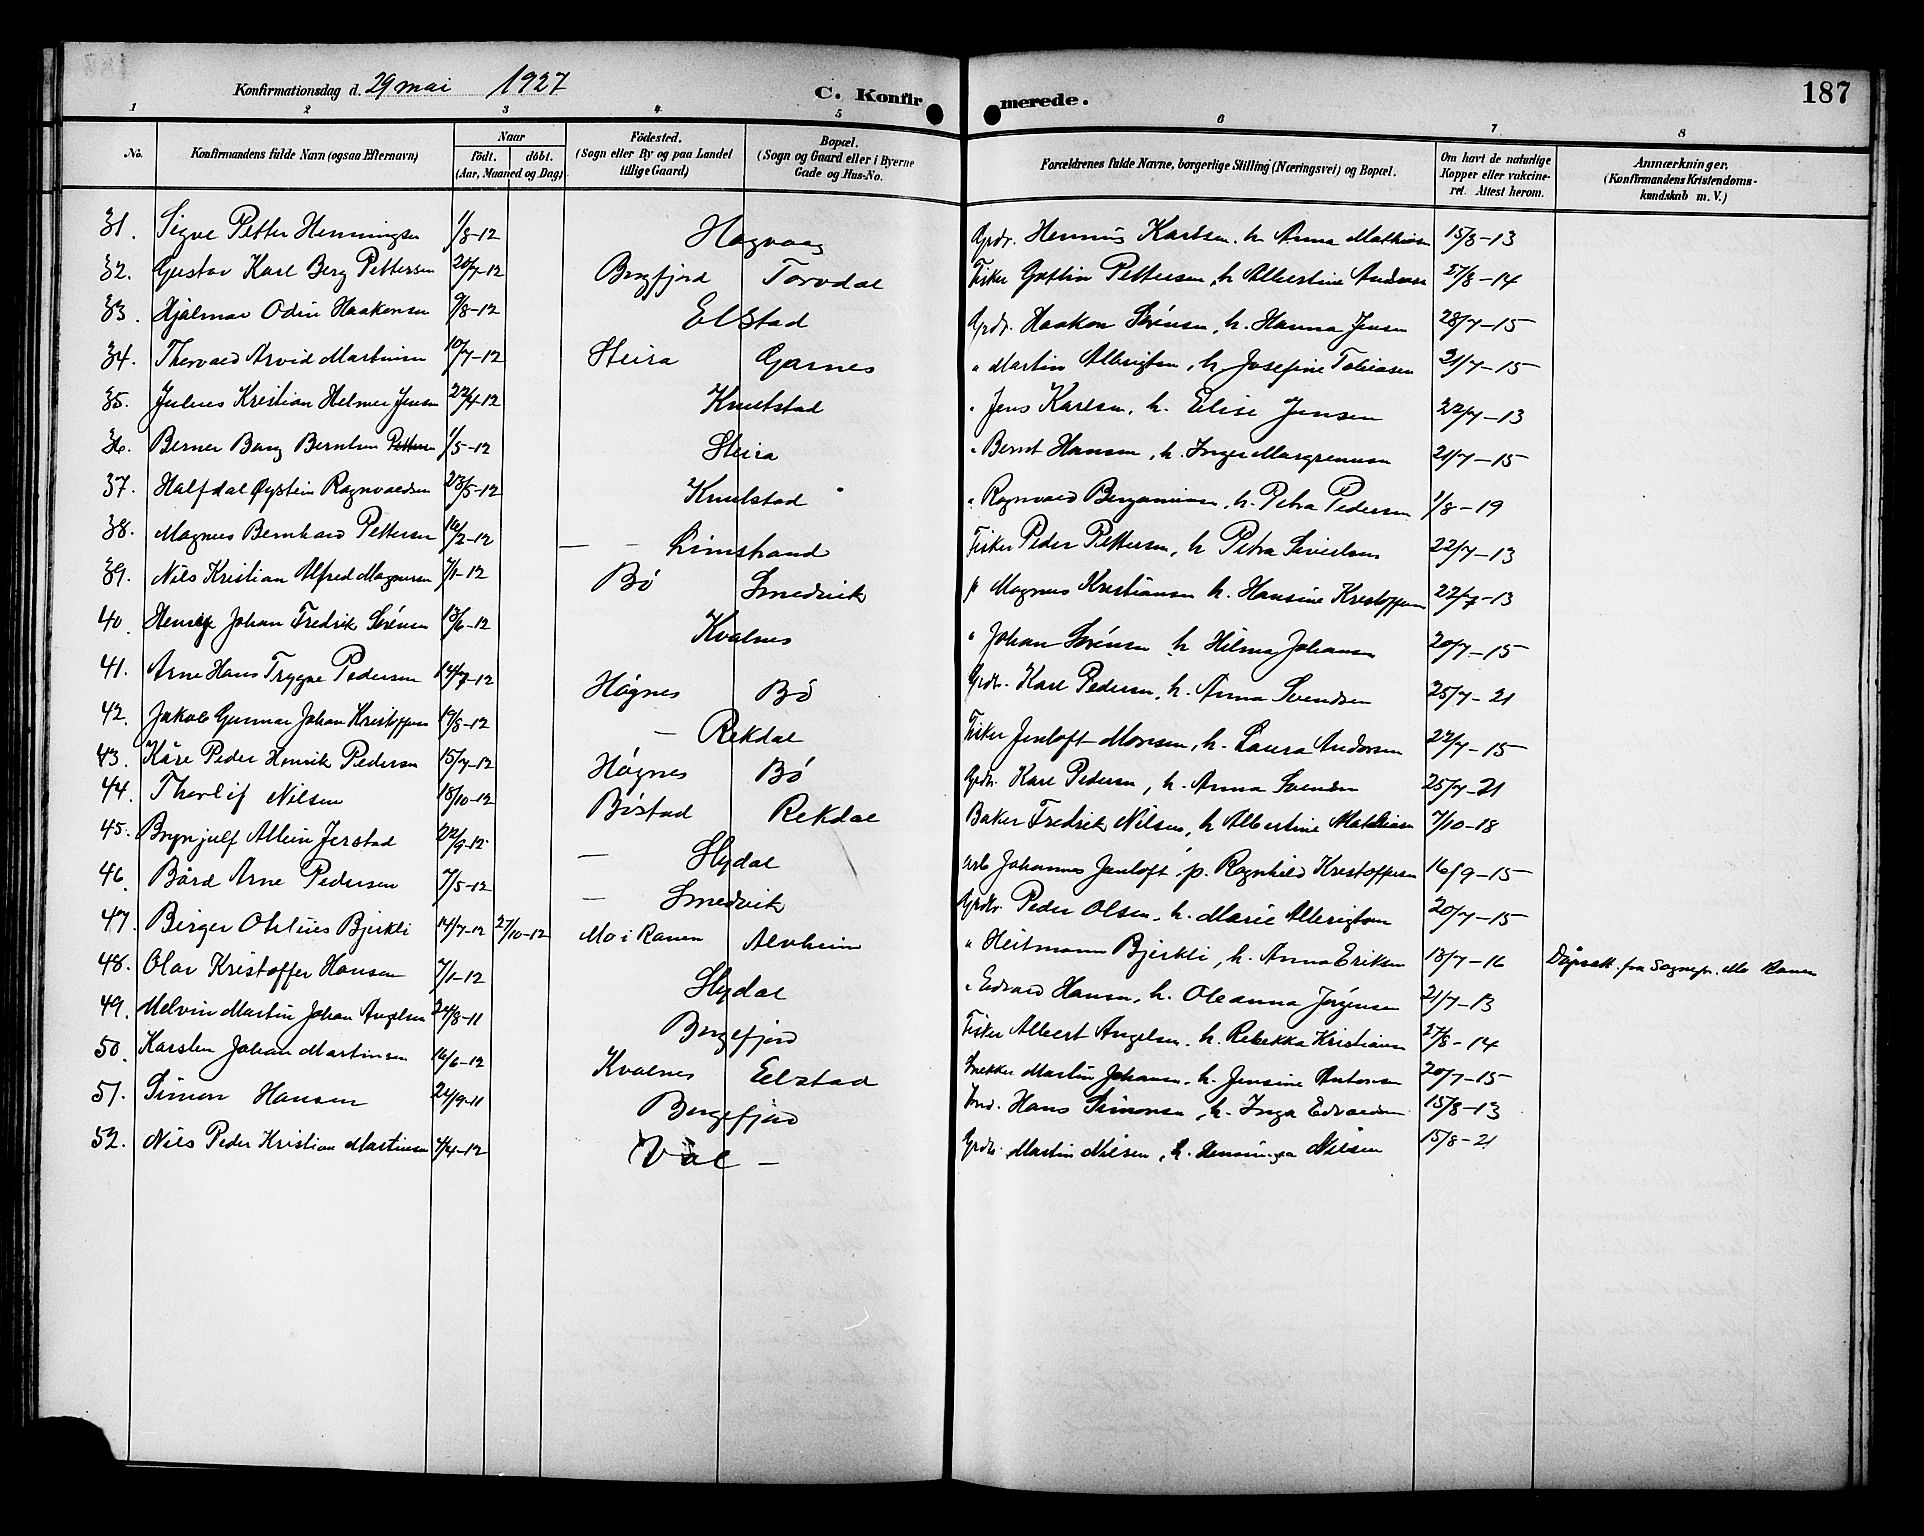 187
Konfirmationsdag d. 29 mai 1927
C. Konfirmerede.
1 2 3 4 5 6 7 8
No. Konfirmandens fulde Navn (ogsaa Efternavn) Naar født. døbt. (Aar, Maaned og Dag) Födested. (Sogn eller By og paa Landet tillige Gaard) Bopæl. (Sogn og Gaard eller i Byerne Gade og Hus-No. Forældrenes fulde Navne, borgerlige Stilling (Næringsvei) og Bopæl. Om havt de naturlige Kopper eller vakcineret. Attest herom. Anmærkninger. (Konfirmandens Kristendomskundskab m. V.)
31. Sigve Petter Henningsen 1/8-12 Hagvaag Grdr. Hennus Karlsen, h. Anna Mathisen 15/8-13
32. Gustav Karl Berg Pettersen 20/7-12 Bergfjord Torvdal Fisker Pettersen, h. Albertine Andersen 27/8-14
33. Hjalmar Odin Haakonsen 9/8-12 Elstad Grdr. Haakon Sørensen, h. Hanna Jensen 28/7-15
34. Thorvald Arvid Martinsen 10/7-12 Steira Garnes " Martin Albrigtsen, h. Josefine Tobiasen 21/7-15
35. Julius Kristian Helmer Jensen 22/4-12 Knutstad " Jens Karlsen, h. Elise Jensen 22/7-13
36. Berner Berg Berntsen 1/5-12 Steira " Bernt Hansen, h. Inger 21/7-15
37. Halfdal Øystein Ragnvaldsen 28/5-12 Knutstad " Ragnvald Benjaminsen, h. Petra Pedersen 1/8-19
38. Magnus Bernhard Pettersen 16/2-12 — — Limstrand Fisker Peder Pettersen, h. Petra Sivertsen 22/7-13
39. Nils Kristian Alfred Magnussen 7/1-12 Bø Smedvik " Magnus Kristiansen h. Hansine Kristoffersen 22/7-13
40. Henrik Johan Fredrik Sørensen 13/6-12 Kvalnes " Johan Sørensen h. Hilma Johansen 20/7-15
41. Arne Hans Trygve Pedersen 14/7-12 Høgnes Bø Grdr. Karl Pedersen, h. Anna Svendsen 25/7-21
42. Jakob Gunnar Johan Kristoffersen 19/8-12 — Rekdal Fisker Jentoft Monsen, h. Laura Andorsen 22/7-15
43. Kåre Peder Henrik Pedersen 15/7-12 Høgnes Bø Grdr. Karl Pedersen, h. Anna Svendsen 25/7-21
44. Thorlif Nilsen 18/10-12 Bøstad Rekdal Baker Fredrik Nilsen, h. Albertine Mathisen 7/10-18
45. Brynjulf Allein Jerstad 22/9-12 — Slydal Arb Johannes Jentoft, p. Ragnhild Kristoffersen 16/9-15
46. Bård Arne Pedersen 7/5-12 — Smedvik Grdbr. Peder Olsen, h. Marie Albrigtsen 20/7-15
47. Birger Othelius Bjerkli 14/7-12 27/10-12 Mo i Ranen Alvheim " Heitmann Bjerkli, h. Anna Eriksen 18/7-16 Dåpsatt. fra Sognepr. Mo Ranen
48. Olav Kristoffer Hansen 7/1-12 Slydal " Edvard Hansen, h. Oleanna Jørgensen 21/7-13
49. Melvin Martin Johan Angelsen 24/8-11 Bergefjord Fisker Albert Angelsen, h. Rebekka Kristiansen 27/8-14
50. Karsten Johan Martinsen 16/6-12 Kvalnes Eelstad Snekker Martin Johansen, h. Jensine Antonsen 20/7-15
51. Simon Hansen 24/9-11 Bergefjord Ind. Hans Simonsen, h. Inga Edvardsen 15/8-13
52. Nils Peder Kristian Martinsen 4/4-12 Val — Grdbr. Martin Nilsen, h. Nilsen 15/8-21